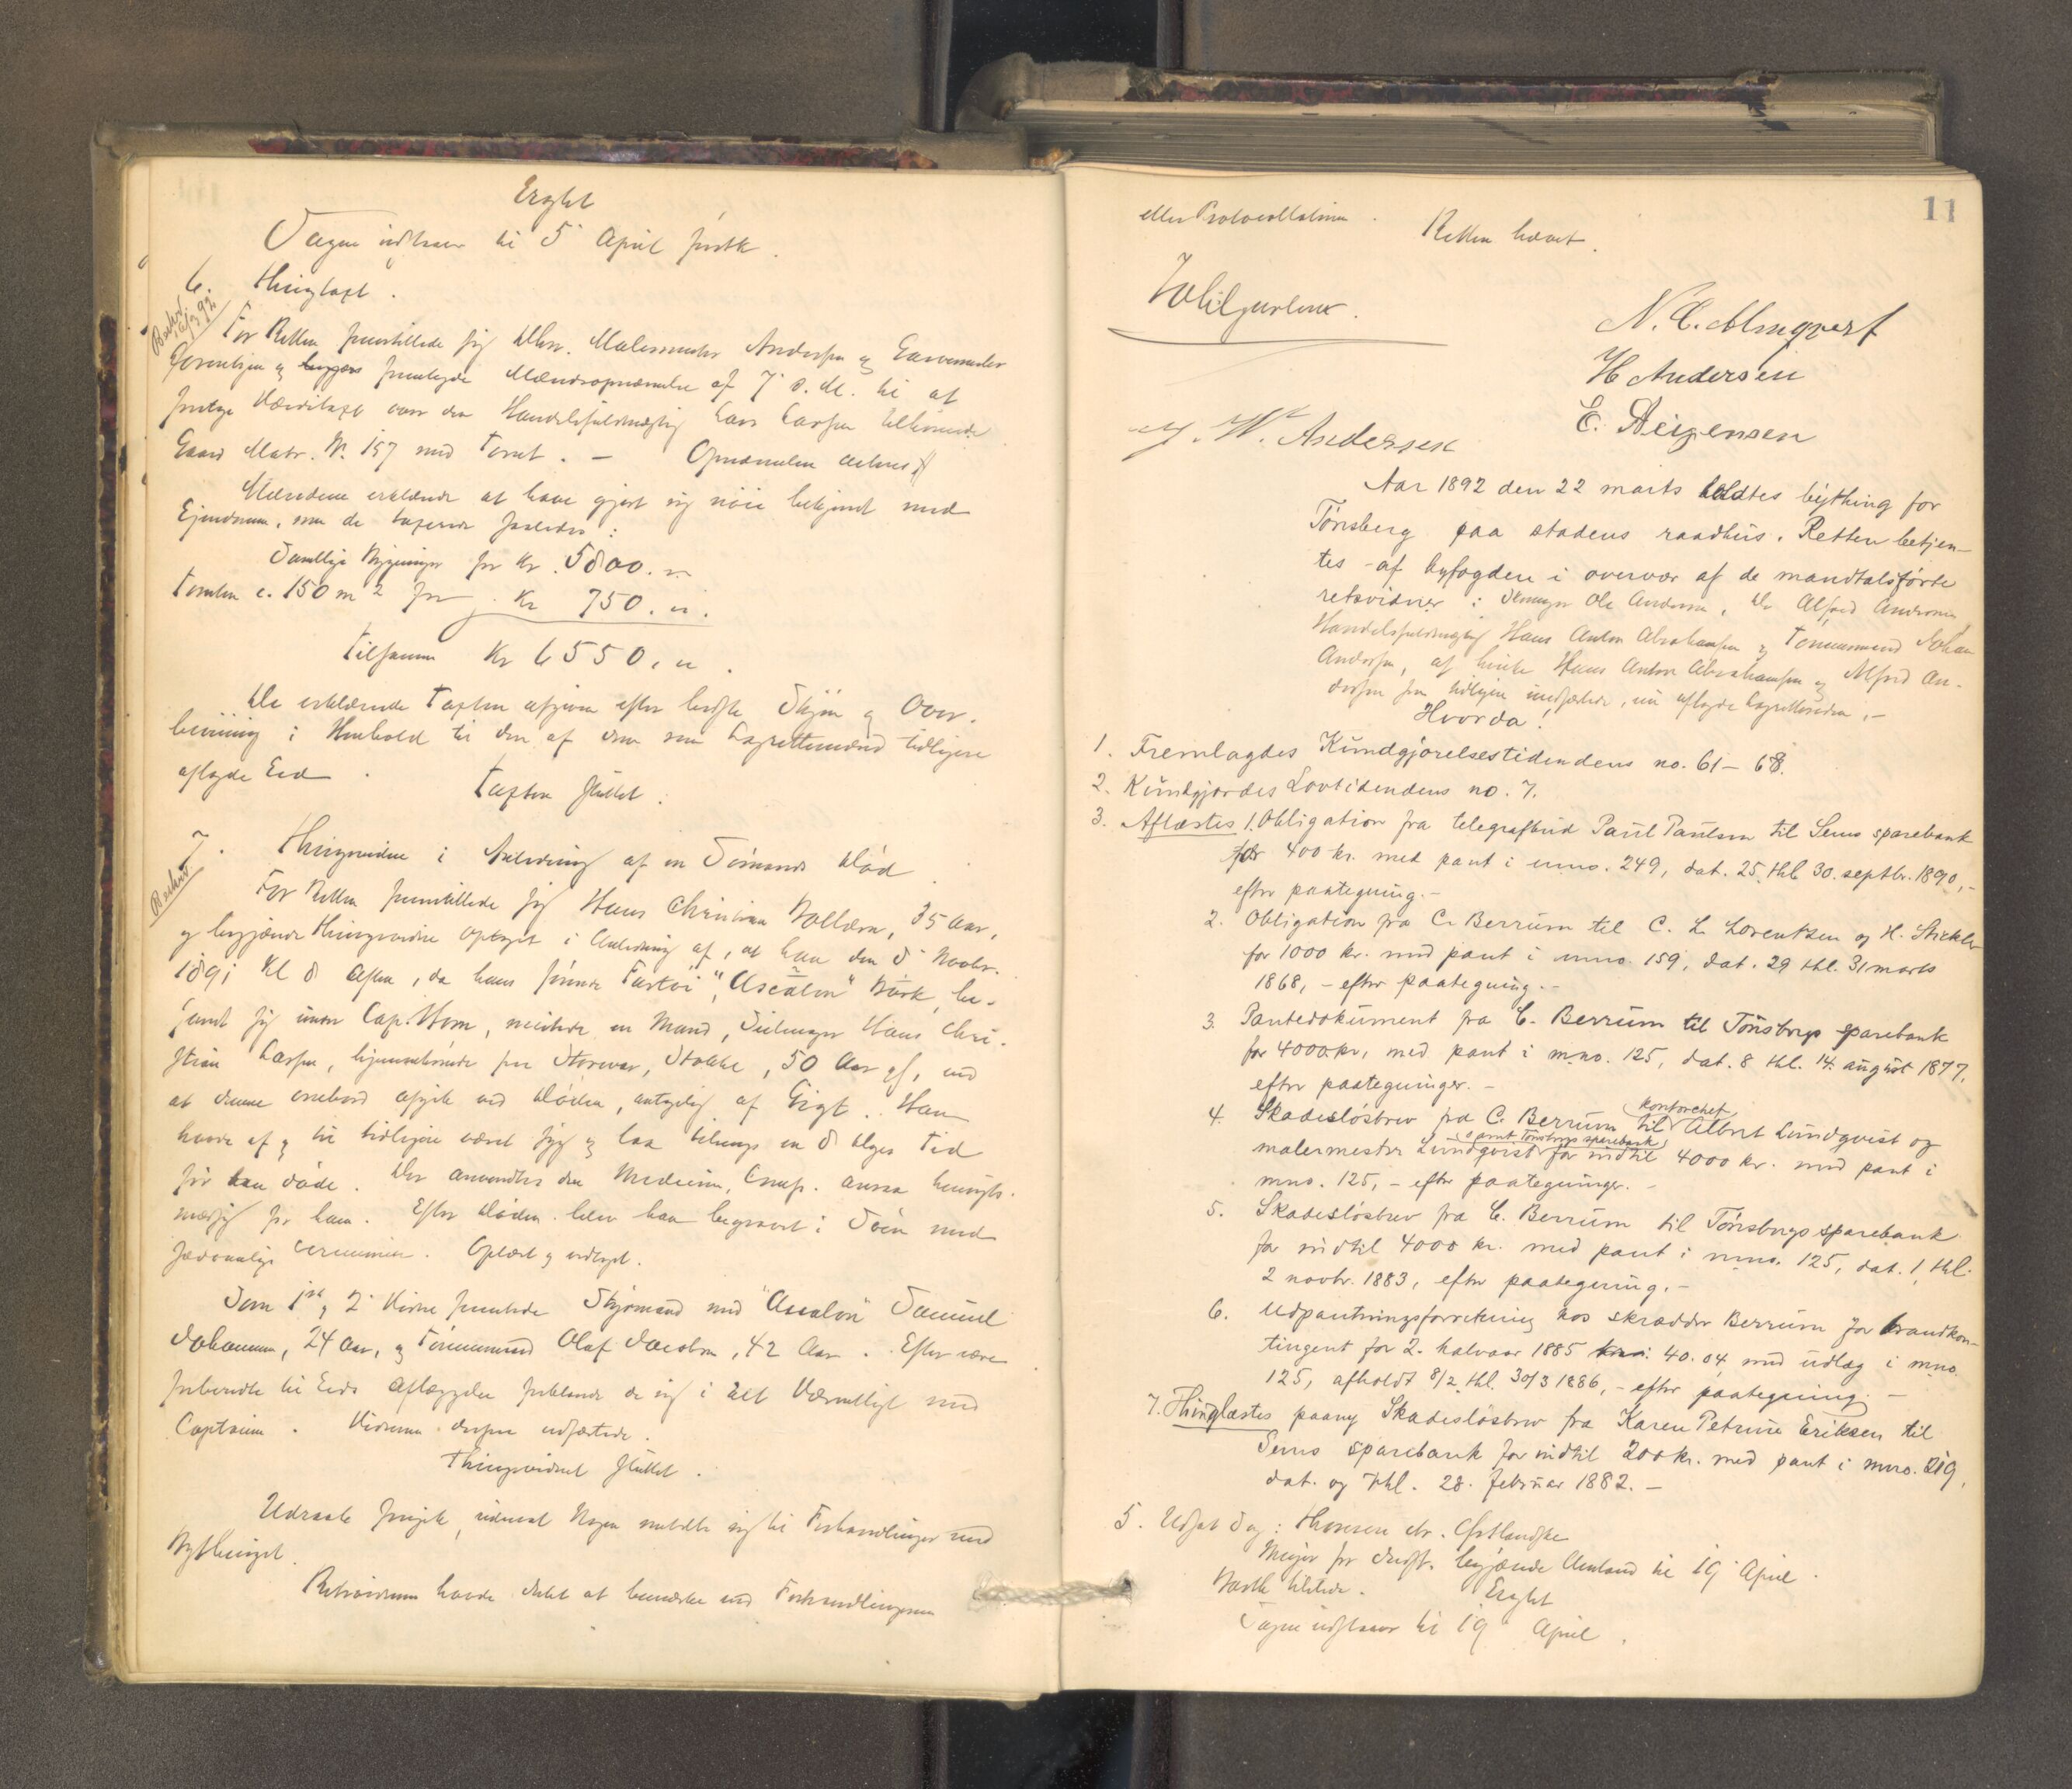 Eragtet
Sagen udstaar til 5 April førstk.
6. Thingtaxt.
Beskrt. 16/3 92.
For Retten fremstillede sig Hhrr. Malermester Andersen og Garvermester
Gorrensen og fremlagde Mændsopnævnelse af 7 d. M. til at
foretage Værditaxt over den Handelsfuldmægtig Lars Larsen tilhørende
Gaard Matr. N. 157 med Tomt. – Opnævnelsen acteres
Mændene erklærede at have gjort sig nøie bekjendt med
Ejendommen, som de taxerede saaledes:
Samtlige Bygninger for Kr. 5800. "
Tomten c. 150 m2 for Kr 750. "
Tilsammen Kr 6550, "
De erklærede Taxten afgiven efter bedste Skjøn og Over-
beviisning i Henhold til den af dem som Lagrettesmænd tidligere
aflagte Eed.
Taxten sluttet.
7. Thingsvidne i Anledning af en Sømands Død.
Beskrt
For Retten fremstillede sig Hans Christian Bollærn, 35 Aar,
og begjærede Thingsvidne optaget i Anledning af, at han den 8 Novbr.
1891 Kl 8 Aften, da hans førende Fartøi, "Ascalon" Bark, be-
fandt sig under Cap Horn, mistede en Mand, Seilmager Hans Chri-
stian Larsen, hjemmehørende paa Storevar, Stokke, 50 Aar gl, ved
at denne ombord afgik ved Døden, antagelig af Gigt. Han
havde af og til tidligere været syg og laa tilsengs en 8 Dages Tid
før han døde. Der anvendtes den Medicin, Cap. ansaa hensigts-
mæssig for ham. Efter Døden blev han begravet i Søen med
sædvanlige Ceremonier. Oplæst og vedtaget.
Som 1ste og 2 Vidne fremstode Styrmand med "Ascalon" Samuel
Johannesen, 24 Aar, og Tømmermand Olaf Jacobsen, 42 Aar. Efter være
forberedte til Eeds Aflæggelse forklarede de sig i Alt Væsentligt med
Captainen. Vidnerne derpaa edfæstede.
Thingsvidnet sluttet.
Udraab foregik, uden at Nogen meldte sig til Forhandlinger ved
Bythinget.
Retsvidnerne havde Intet at bemærke ved Forhandlingerne
11
eller Protocollationen. Retten hævet.
N. C. Almqvist
H Andersen
E. Steigensen
M. W. Andersen
Aar 1892 den 22 marts holdtes bything for
Tönsberg paa stadens raadhus. Retten betjen-
tes af byfogden i overvær af de mandtalsförte
retsvidner: Ole Andersen, Alfred Andersen
Handelsfuldmægtig Hans Anton Abrahamsen og Tømmermand Johan
Andersen, af hvilke Hans Anton Abrahamsen og Alfred An-
dersen, ei tidligere edfæstede, nu aflagde Lagretteseden. –
Hvorda!
1. Fremlagdes Kundgjörelsestidendens no. 61 – 68.
2. Kundgjordes Lovtidendens no. 7.
3. Aflæstes 1. Obligation fra telegrafbud Paul Paulsen til Sems sparebank
for 400 kr. med pant i mno. 249, dat. 25. thl 30. septbr. 1890, –
efter paategning. –
2. Obligation fra C. Berrum til C. L. Lorentzen og H. Stickler
for 1000 kr. med pant i mno. 159, dat. 29 thl. 31 marts
1868, – efter paategning. –
3. Pantedokument fra C. Berrum til Tönsbergs sparebank
for 4000 kr. med pant i mno. 125, dat. 8 thl. 14. august 1877.
efter paategninger. –
4. Skadeslösbrev fra C. Berrum til kontorchef Albert Lundqvist og
malermester Lundqvist samt Tönsbergs sparebank for indtil 4000 kr. med pant i
mno. 125, – efter paategninger. –
5. Skadeslösbrev fra C. Berrum til Tönsbergs sparebank
for indtil 4000 kr. med pant i mno. 125, dat. 1, thl.
2 novbr. 1883, efter paategning. –
6. Udpantningsforretning hos skrædder Berrum for brandkon-
tingent for 2. halvaar 1885 40. 04 med udlæg i mno.
125, afholdt 8/2 thl. 30/3 1886, – efter paategning. –
7. Thinglæstes paany Skadeslösbrev fra Karen Petrine Eriksen til
Sems sparebank for indtil 200 kr. med pant i mno. 219,
dat. og thl. 28. februar 1882. –
5. Udsat Sag: Thoresen ctr. Østlandske
Meyer for Indst. begjærede Anstand til 19 April.
Barth tilstede. Eragtet
Sagen udstaar til 19 April.